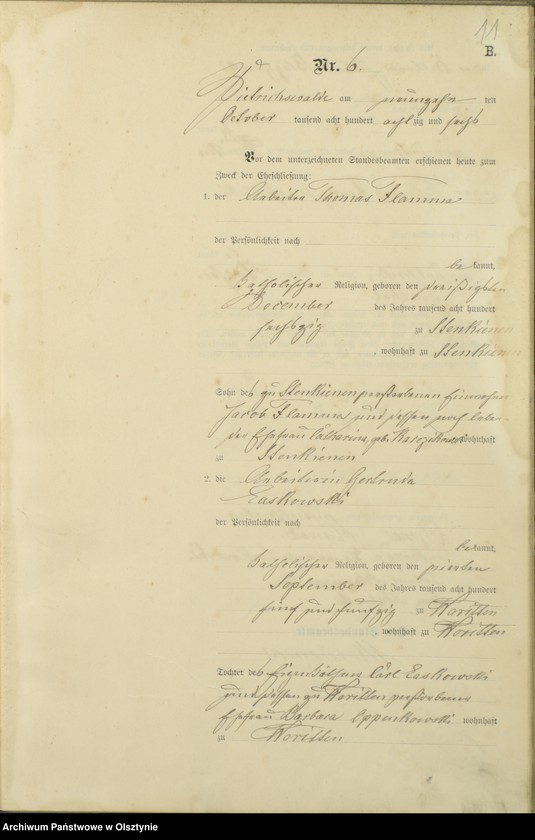 11
B.
Nr. 6.
Dietrichswalde am neunzehn ten
October tausend acht hundert achtzig und sechs
Vor dem unterzeichneten Standesbeamten erschienen heute zum
Zweck der Eheschließung:
1. der Arbeiter Thomas Flamma
der Persönlichkeit nach
be kannt,
katholischer Religion, geboren den dreißigsten
December des Jahres tausend acht hundert
sechszig zu Stenkienen
, wohnhaft zu Stenkienen
Sohn des zu Stenkienen verstorbenen Einwohner
Jacob Flamma und dessen noch lebe-
der Ehefrau Catharina geb. wohnhaft
zu Stenkienen
2. die Arbeiterin Gertruda
Laskowski
der Persönlichkeit nach
be kannt,
katholischer Religion, geboren den vierten
September des Jahres tausend acht hundert
fünf und fünfzig zu Woritten
, wohnhaft zu Woritten
Tochter des Eigenkäthners Carl Laskowski
und dessen zu Woritten verstorbenen
Ehefrau Barbara Oppenkowski wohnhaft
zu Woritten
Archiwum Państwowe w Olsztynie